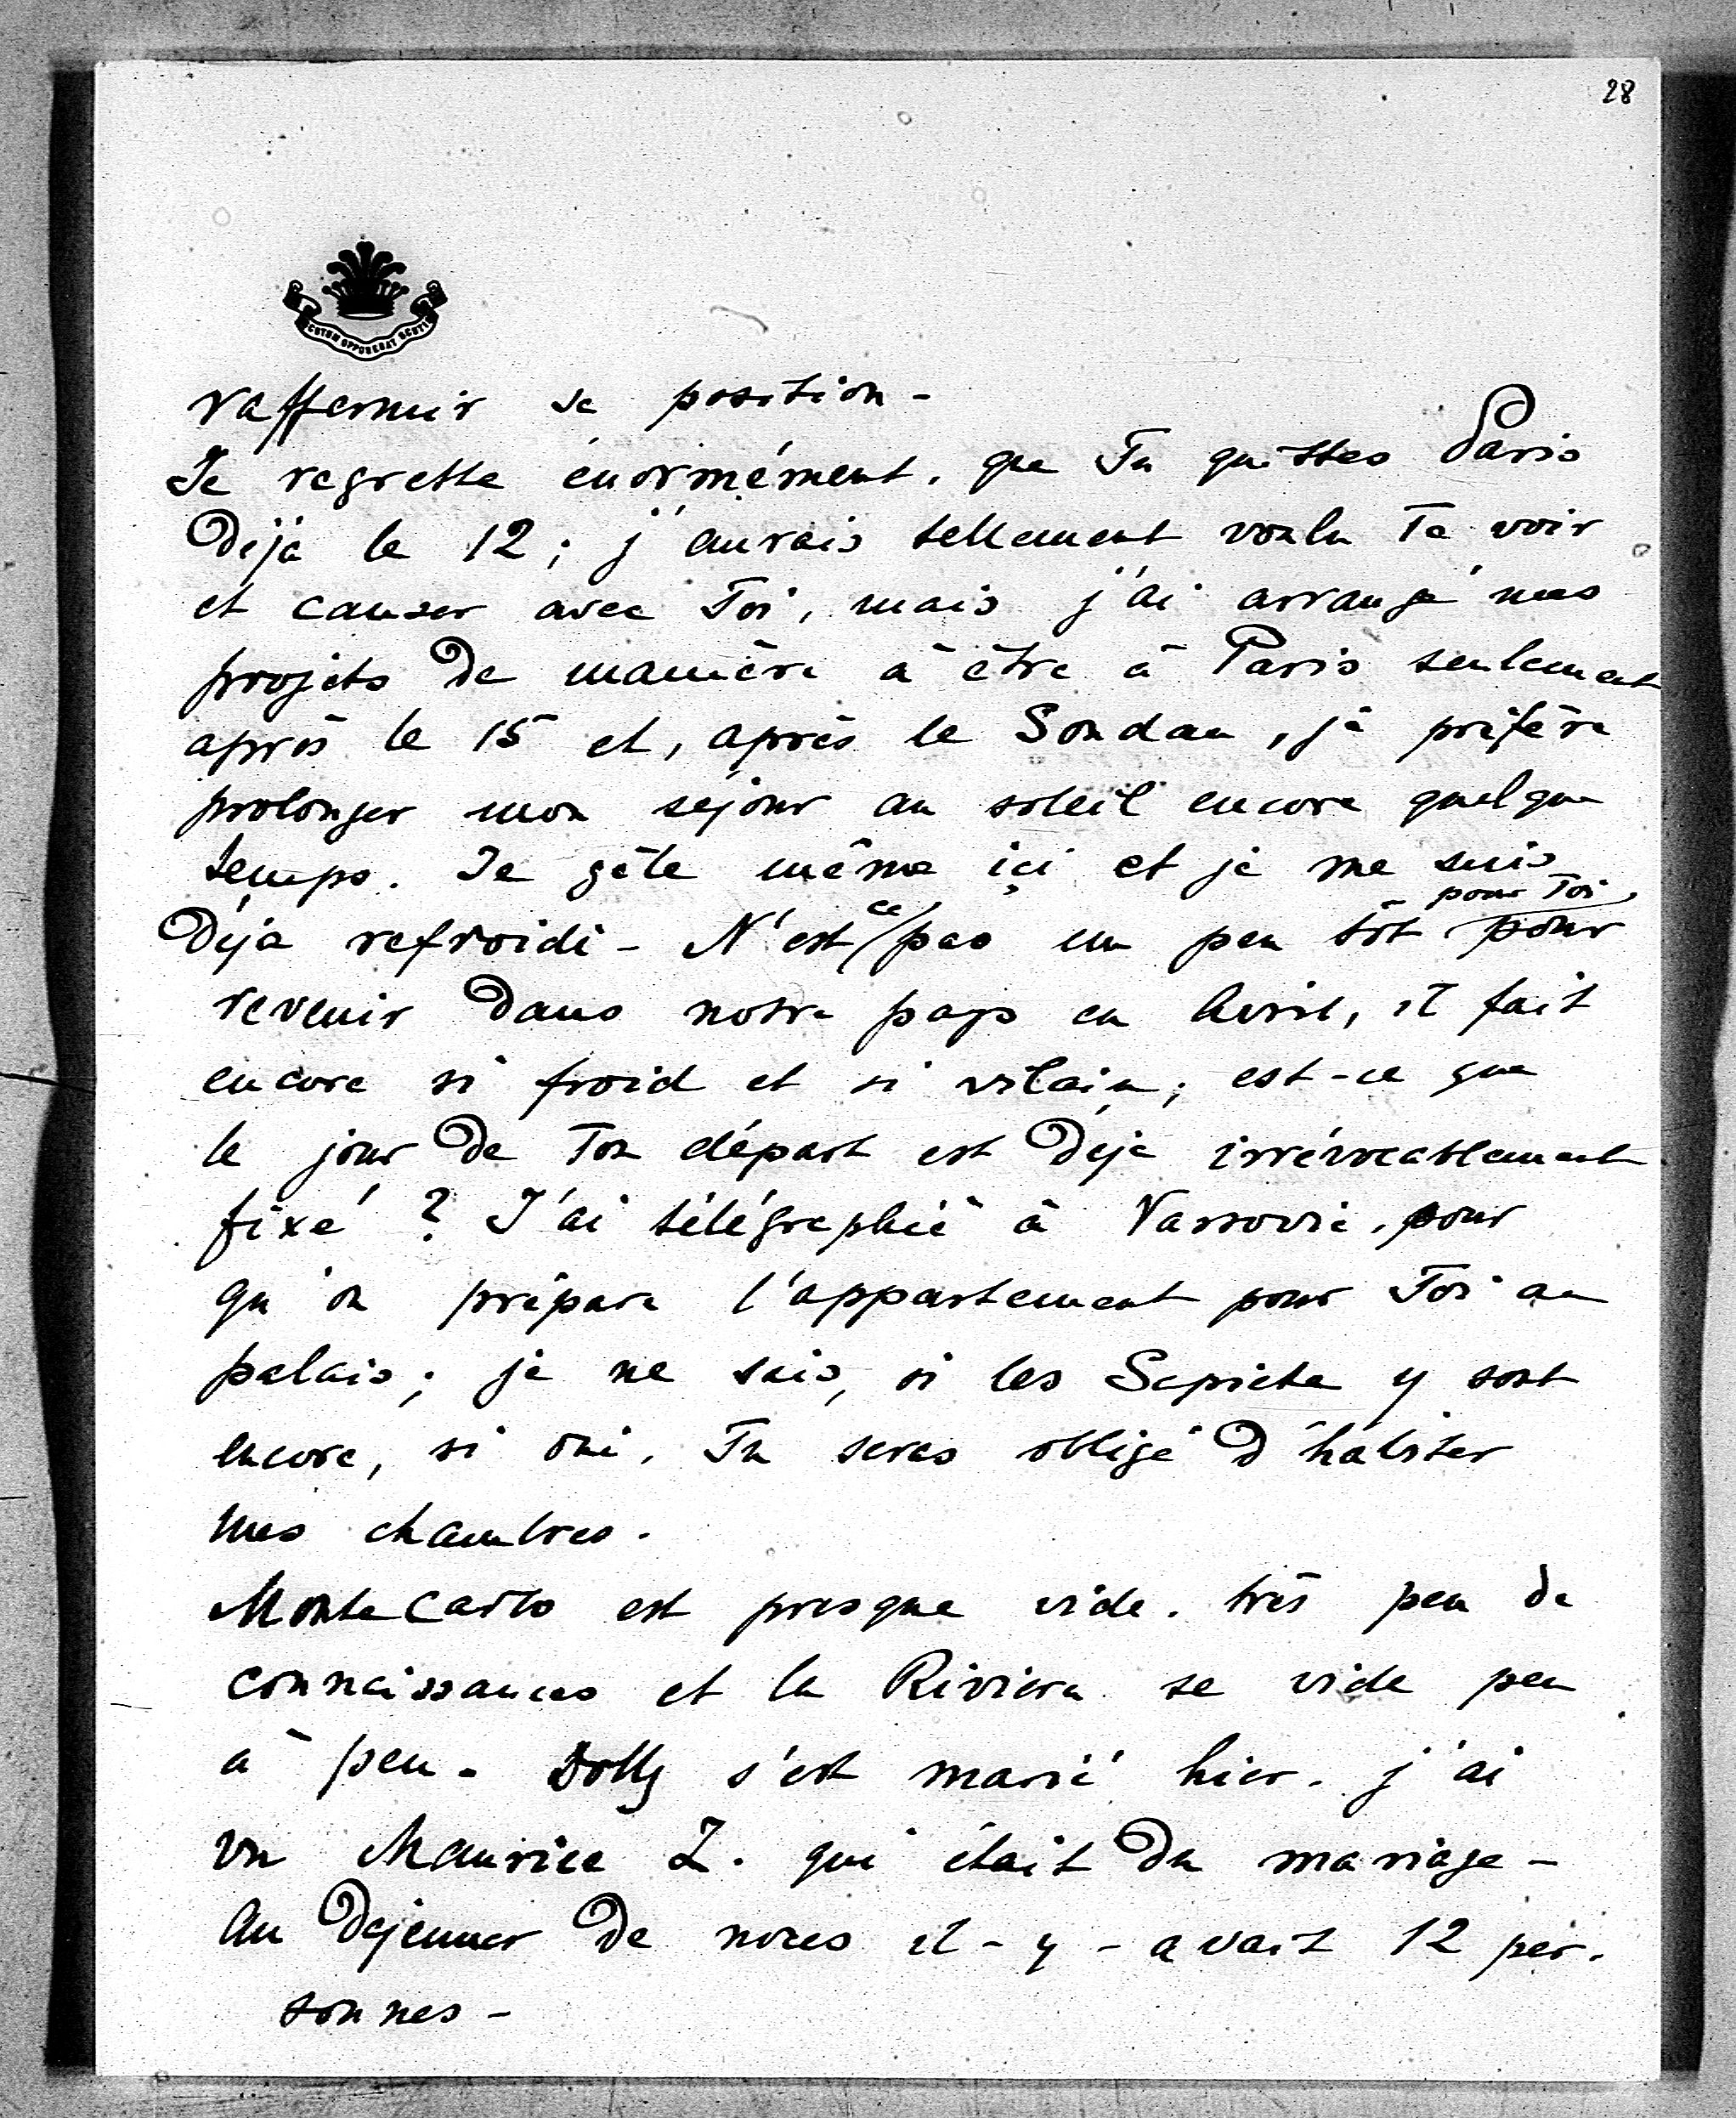 28
SCUTUM OPPONEBAT SCUTIS
raffermir sa position -
Je regrette énormément, que Tu quittes Paris
Déjà le 12 ; j'aurais tellement voulu Te voir
et causer avec Toi, mais j'ai arrangé mes
projets De manière à être à Paris seulement
après le 15 et, après le Soudan, je préfère
prolonger mon séjour au soleil encore quelque
temps. Je gèle même içi et je me suis
pour Toi,
Déja refroidi - N'est ce pas un peu tôt pour
revenir Dans notre pays en Avril, il fait
encore si froid et si vilain ; est-ce que
le jour De Ton départ est Déja irrévocablement
fixé ? J'ai télégraphié à Varsovie, pour
qu'on prépare l'appartement pour Toi au
palais ; je ne sais, si les Sapieha y sont
encore, si oui, Tu seras obligé D'habiter
mes chambres.
Monte Carlo est presque vide. très peu de
connaissances et la Riviera se vide peu
à peu. Dolly s'est marié hier. j'ai
vu Maurice Z. qui était Du mariage -
Au Dejeuner De noces il-y-avait 12 per-
sonnes -